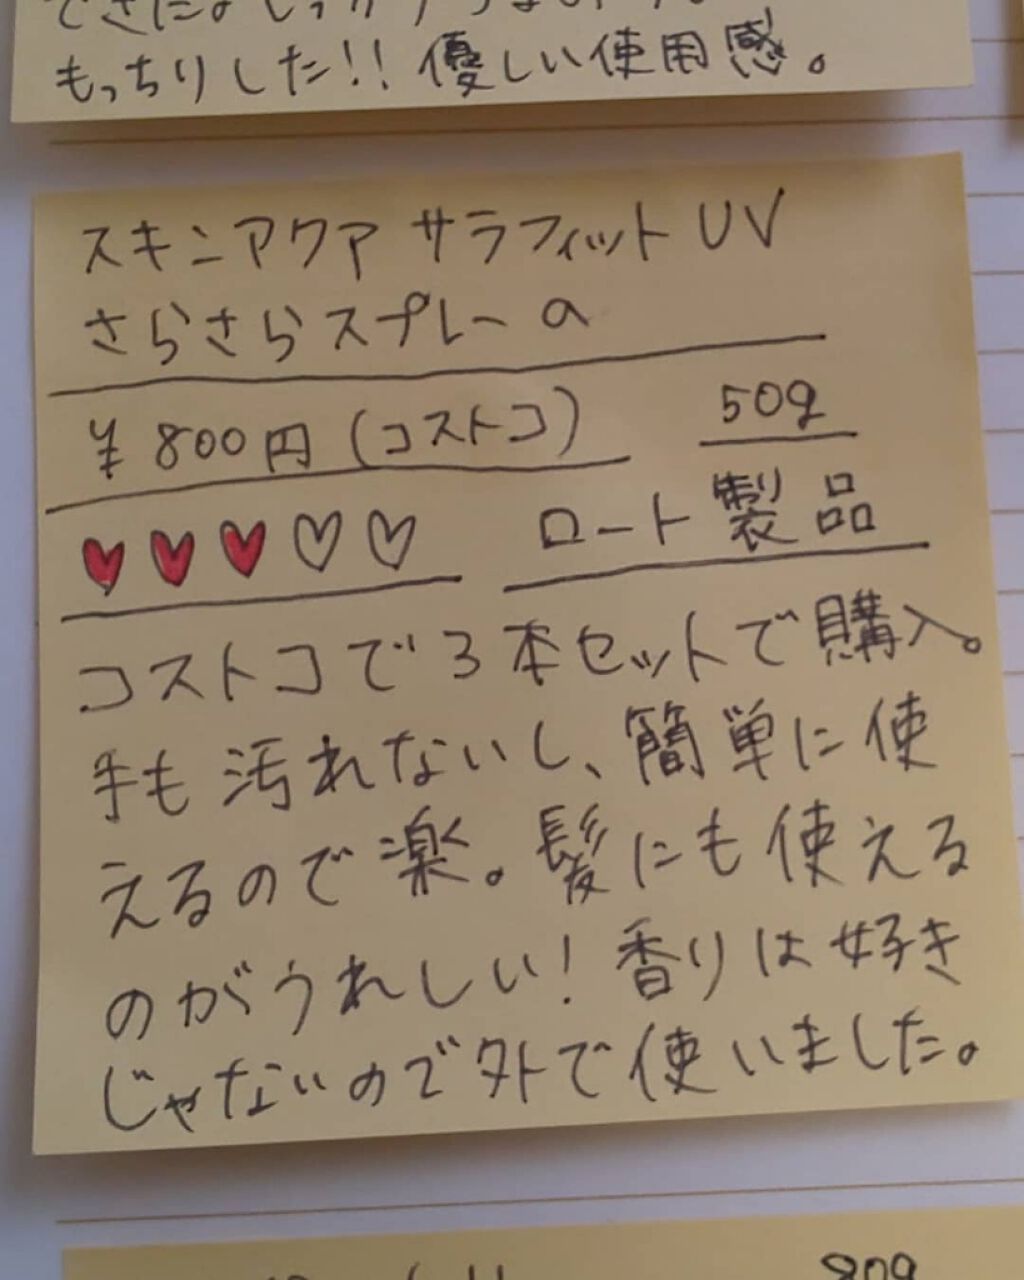 もっちりした!! 優しい使用感。
スキンアクア サラフィット UV
さらさらスプレー a
¥ 800円 (コストコ) 50g
♥♥♥♡♡ ロート製品
コストコで3本セットで購入。
手も汚れないし、簡単に使
えるので楽。髪にも使える
のがうれしい! 香りは好き
じゃないので外で使いました。
80g